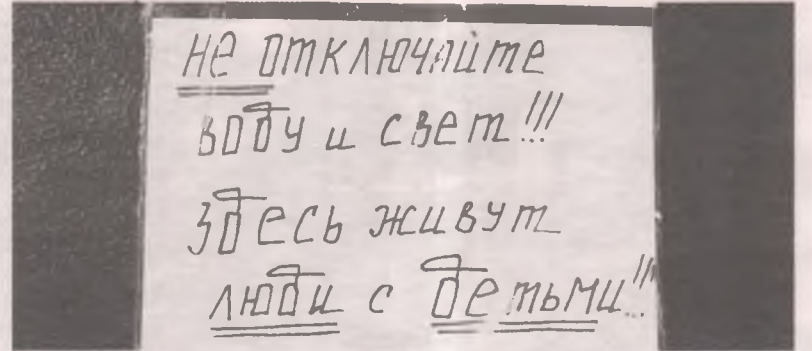 не отключайте
воду и свет!!!
здесь живут
люди с детьми!!!